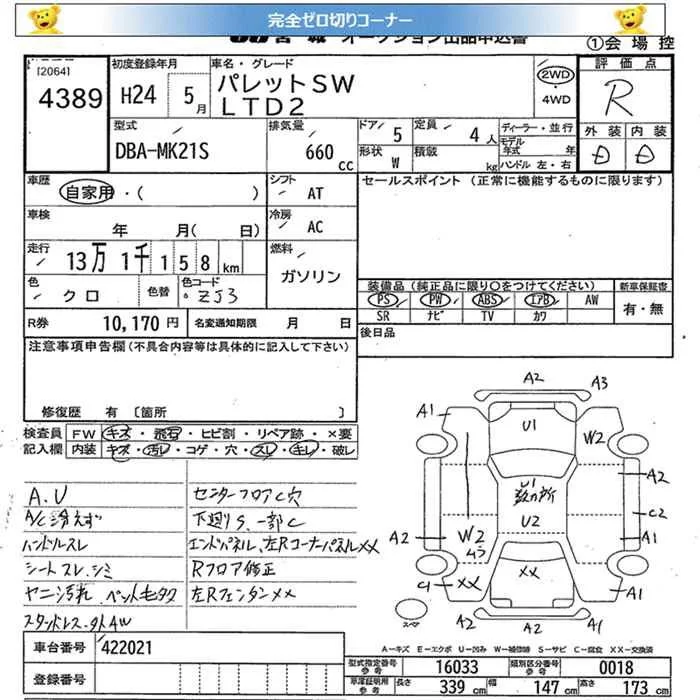 完全ゼロ切りコーナー
オークション出品申込書
①会場控
[2064]
4389
初度登録年月
H24 5月
車名・グレード
パレットSW
LTD2
2WD
・4WD
評価点
R
外装 内装
D D
型式
DBA-MK21S
排気量
660 cc
ドア 5
形状 W
定員 4人
積載 kg
ディーラー・並行
モデル年式 年
ハンドル 左・右
車歴
自家用・( )
シフト
AT
セールスポイント(正常に機能するものに限ります)
車検
年 月( 日)
冷房
AC
走行
13万1千158km
燃料
ガソリン
色
クロ
色替
色コード
ZJ3
装備品(純正品に限り○をつけてください)
新車保証書
PS PW ABS エアB AW
SR ナビ TV カワ
有・無
R券 10,170円
名変通知期限 月 日
後日品
注意事項申告欄(不具合内容等は具体的に記入して下さい)
修復歴 有〔箇所 〕
検査員
記入欄
FW キズ・飛石・ヒビ割・リペア跡・×要
内装 キズ・汚レ・コゲ・穴・スレ・キレ・破レ
A.U
A/C冷えず
ハンドルスレ
シートスレ、シミ
ヤニ汚れ、ペット毛多々
スタッドレス・外AW
センターフロアC穴
下廻りS、一部C
エンドパネル、左RコーナーパネルXX
Rフロア修正
左RフェンダーXX
A2
A3
A1
U1
W2
A2
U1
数カ所
C2
U2
A2
W2
U3
A1
C1
XX
XX
A1
スペア
A2
A2
A1
A-キズ E-エクボ U-凹み W-補修跡 S-サビ C-腐食 XX-交換済
車台番号
422021
登録番号
型式指定番号 参考 16033
類別区分番号 参考 0018
車庫証明用 参考
長さ 339 cm
幅 147 cm
高さ 173 cm